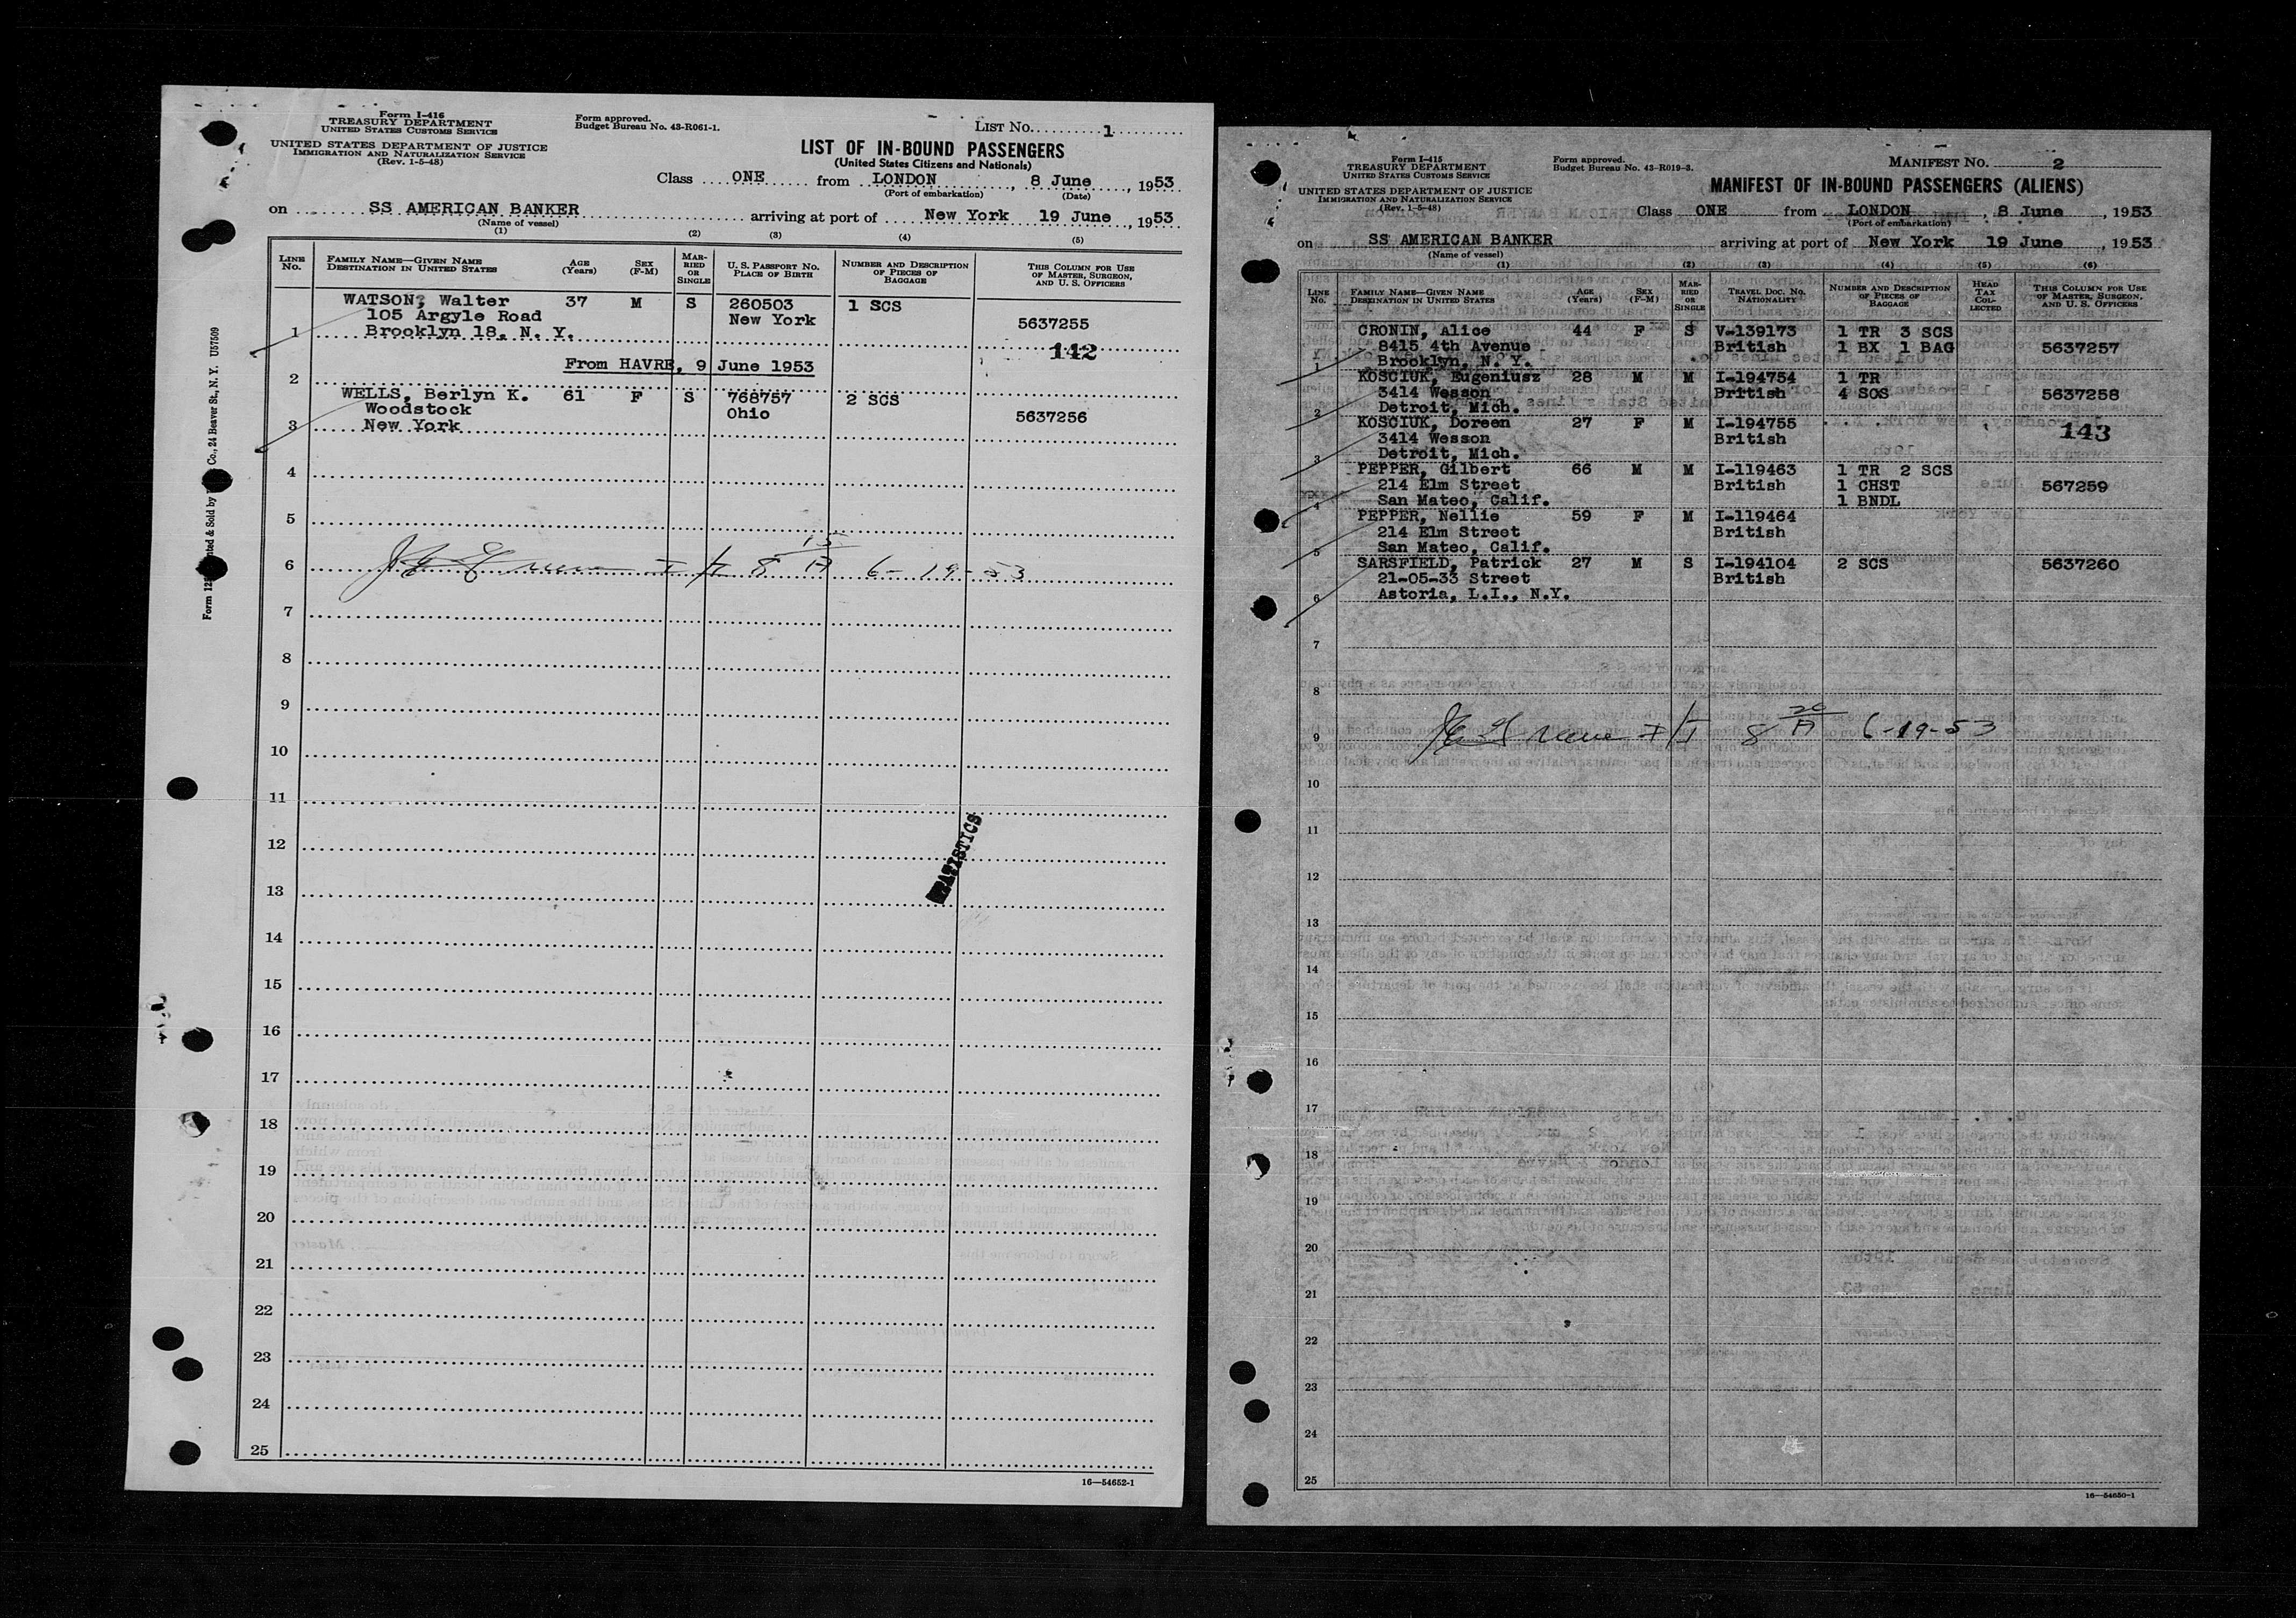 Form I-416
TREASURY DEPARTMENT
UNITED STATES CUSTOMS SERVICE
UNITED STATES DEPARTMENT OF JUSTICE
IMMIGRATION AND NATURALIZATION SERVICE
(Rev. 1-5-48)
Form approved.
Budget Bureau No. 43-R061-1.
LIST NO. 1
LIST OF IN-BOUND PASSENGERS
(United States Citizens and Nationals)
Class ONE from LONDON, 8 June, 1953
(Port of embarkation) (Date)
on SS AMERICAN BANKER arriving at port of New York 19 June, 1953
(Name of vessel)
(1) (2) (3) (4) (5)
LINE NO. FAMILY NAME—GIVEN NAME DESTINATION IN UNITED STATES AGE (Years) SEX (F-M) MARRIED OR SINGLE U. S. PASSPORT NO. PLACE OF BIRTH NUMBER AND DESCRIPTION OF PIECES OF BAGGAGE THIS COLUMN FOR USE OF MASTER, SURGEON, AND U. S. OFFICERS
WATSON, Walter 37 M S 260503 1 SCS
105 Argyle Road New York 5637255
1 Brooklyn 18, N. Y.
142
From HAVRE, 9 June 1953
2
WELLS, Berlyn K. 61 F S 768757 2 SCS
Woodstock Ohio 5637256
3 New York
4
5
15
6 I 8 A 6-19-53
7
8
9
10
11
12
STATISTICS
13
14
15
16
17
18
19
20
21
22
23
24
25
16—54652-1
Co., 24 Beaver St., N. Y. U57509
Form I-415
TREASURY DEPARTMENT
UNITED STATES CUSTOMS SERVICE
UNITED STATES DEPARTMENT OF JUSTICE
IMMIGRATION AND NATURALIZATION SERVICE
(Rev. 1-5-48)
Form approved.
Budget Bureau No. 43-R019-3.
MANIFEST NO. 2
MANIFEST OF IN-BOUND PASSENGERS (ALIENS)
Class ONE from LONDON, 8 June, 1953
(Port of embarkation)
on SS AMERICAN BANKER arriving at port of New York 19 June, 1953
(Name of vessel)
(1) (2) (3) (4) (5) (6)
LINE NO. FAMILY NAME—GIVEN NAME DESTINATION IN UNITED STATES AGE (Years) SEX (F-M) MARRIED OR SINGLE TRAVEL DOC. NO. NATIONALITY NUMBER AND DESCRIPTION OF PIECES OF BAGGAGE HEAD TAX COLLECTED THIS COLUMN FOR USE OF MASTER, SURGEON, AND U. S. OFFICERS
CRONIN, Alice 44 F S V-139173 1 TR 3 SCS
8415 4th Avenue British 1 BX 1 BAG 5637257
1 Brooklyn, N. Y.
KOSCIUK, Eugeniusz 28 M M I-194754 1 TR
3414 Wesson British 4 SCS 5637258
2 Detroit, Mich.
KOSCIUK, Doreen 27 F M I-194755
3414 Wesson British 143
3 Detroit, Mich.
PEPPER, Gilbert 66 M M I-119463 1 TR 2 SCS
214 Elm Street British 1 CHST 567259
4 San Mateo, Calif. 1 BNDL
PEPPER, Nellie 59 F M I-119464
214 Elm Street British
5 San Mateo, Calif.
SARSFIELD, Patrick 27 M S I-194104 2 SCS 5637260
21-05-33 Street British
6 Astoria, L.I., N.Y.
7
8
20
9 I 8 A 6-19-53
10
11
12
13
14
15
16
17
18
19
20
21
22
23
24
25
16—54650-1